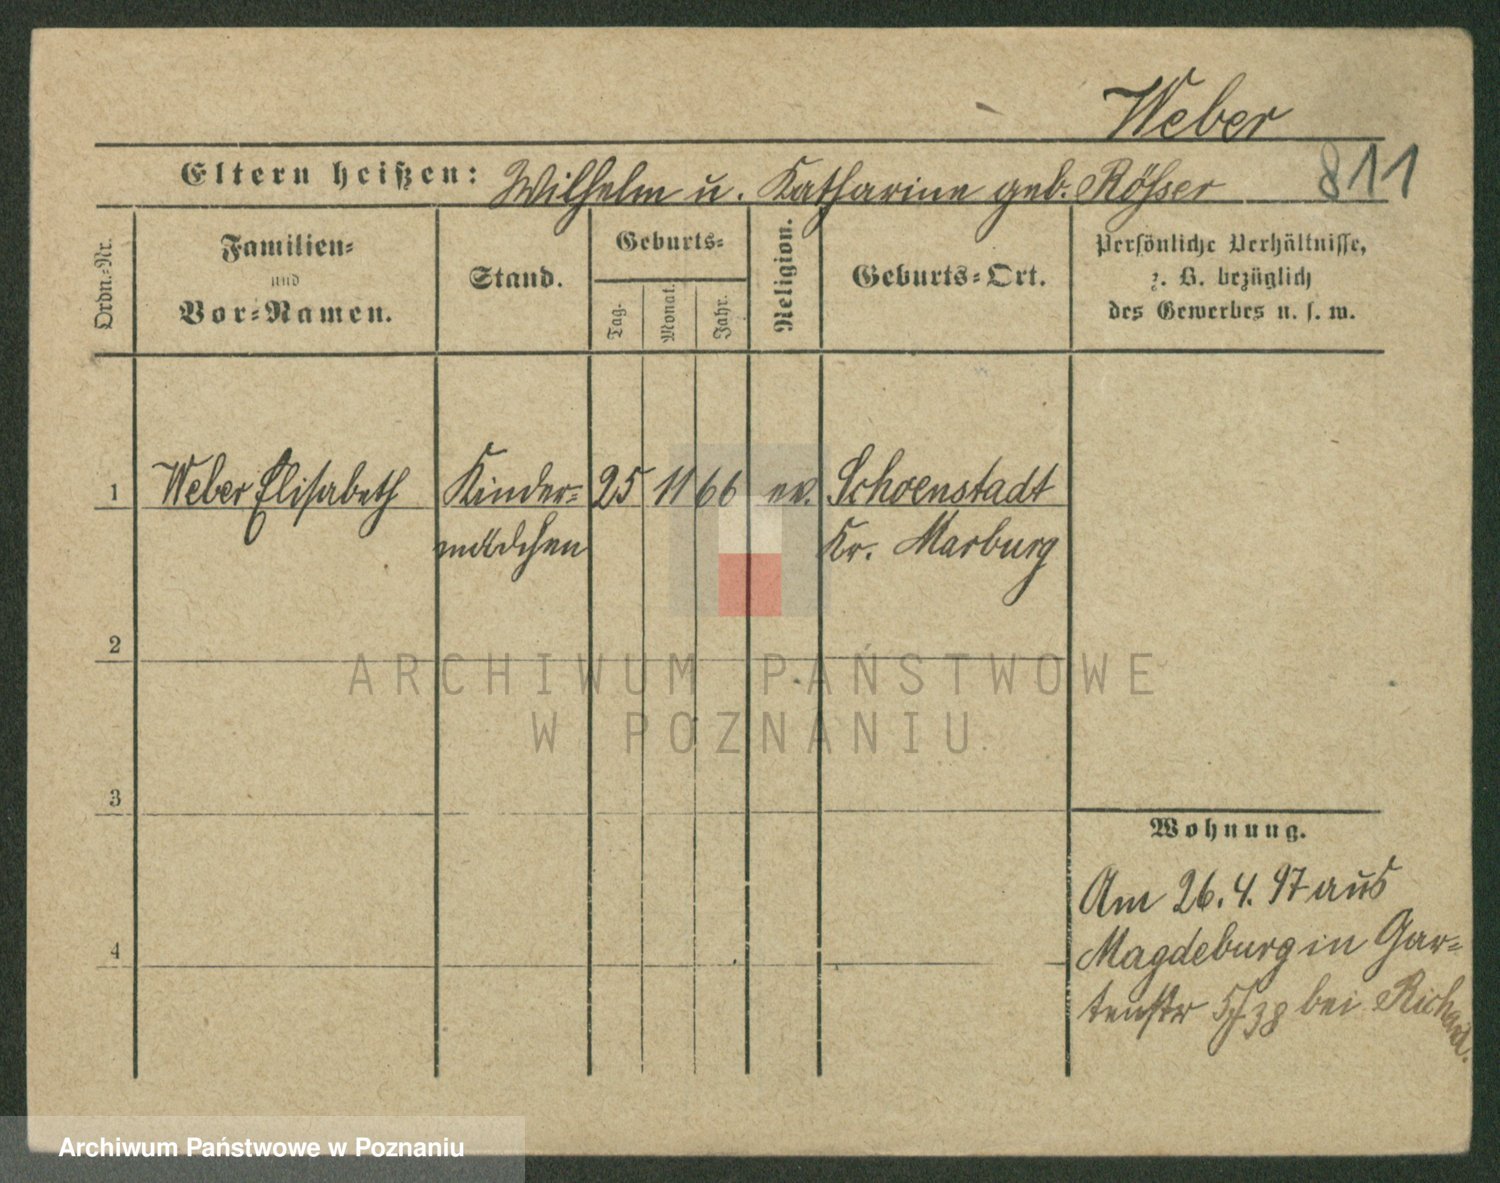 Weber
811
Eltern heißen: Wilhelm u. Katharine geb. Rößer
Ordn.-Nr.
Familien-
und
Vor-Namen.
Stand.
Geburts-
Tag.
Monat.
Jahr.
Religion.
Geburts-Ort.
Persönliche Verhältnisse,
z. B. bezüglich
des Gewerbes u. s. w.
1 Weber Elisabeth Kinder- 25 11 66 ev. Schoenstadt
mädchen Kr. Marburg
2
3
4
Wohnung.
Am 26.4.97 aus
Magdeburg in Gar-
tenstr 5/38 bei Richard.
ARCHIWUM PAŃSTWOWE
W POZNANIU
Archiwum Państwowe w Poznaniu